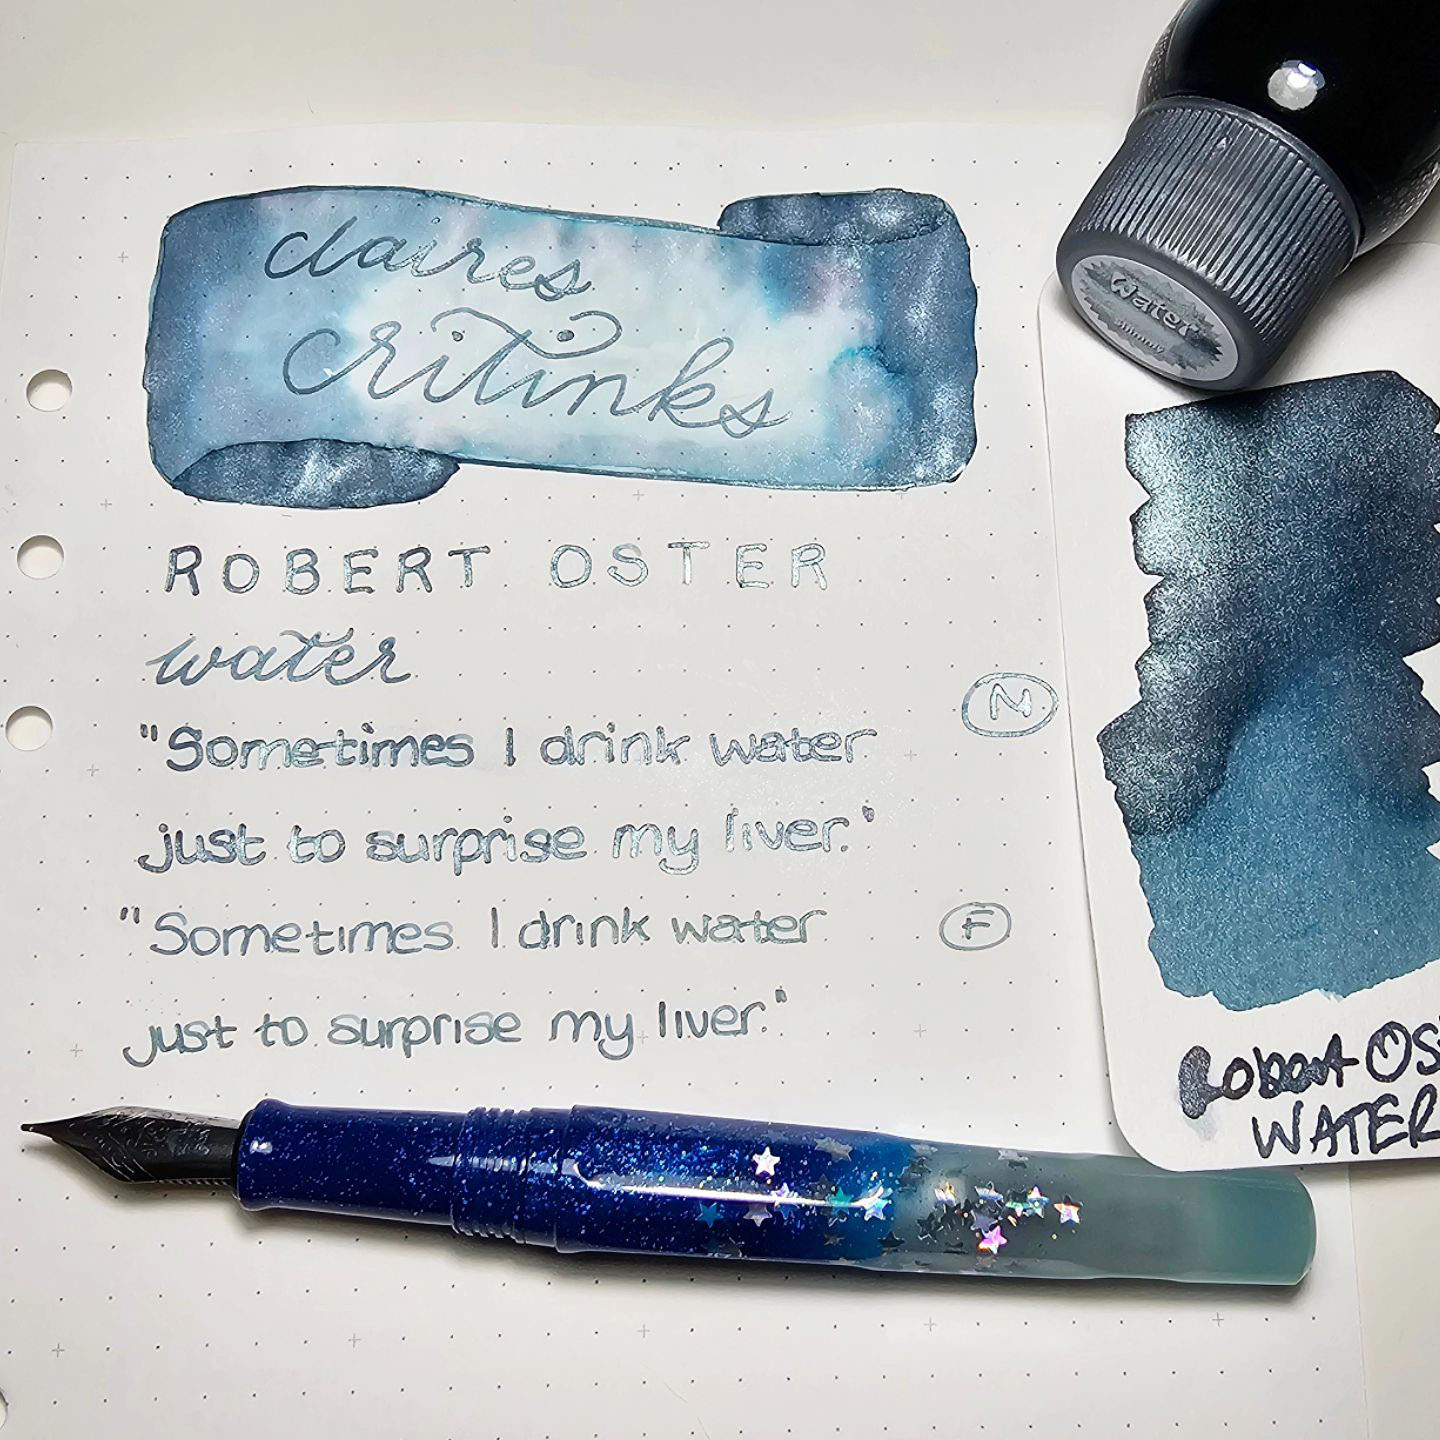 claires
critinks
Water
Shimmy
ROBERT OSTER
water
N
"Sometimes I drink water
just to surprise my liver."
F
"Sometimes I drink water
just to surprise my liver."
Robert Os
WATER